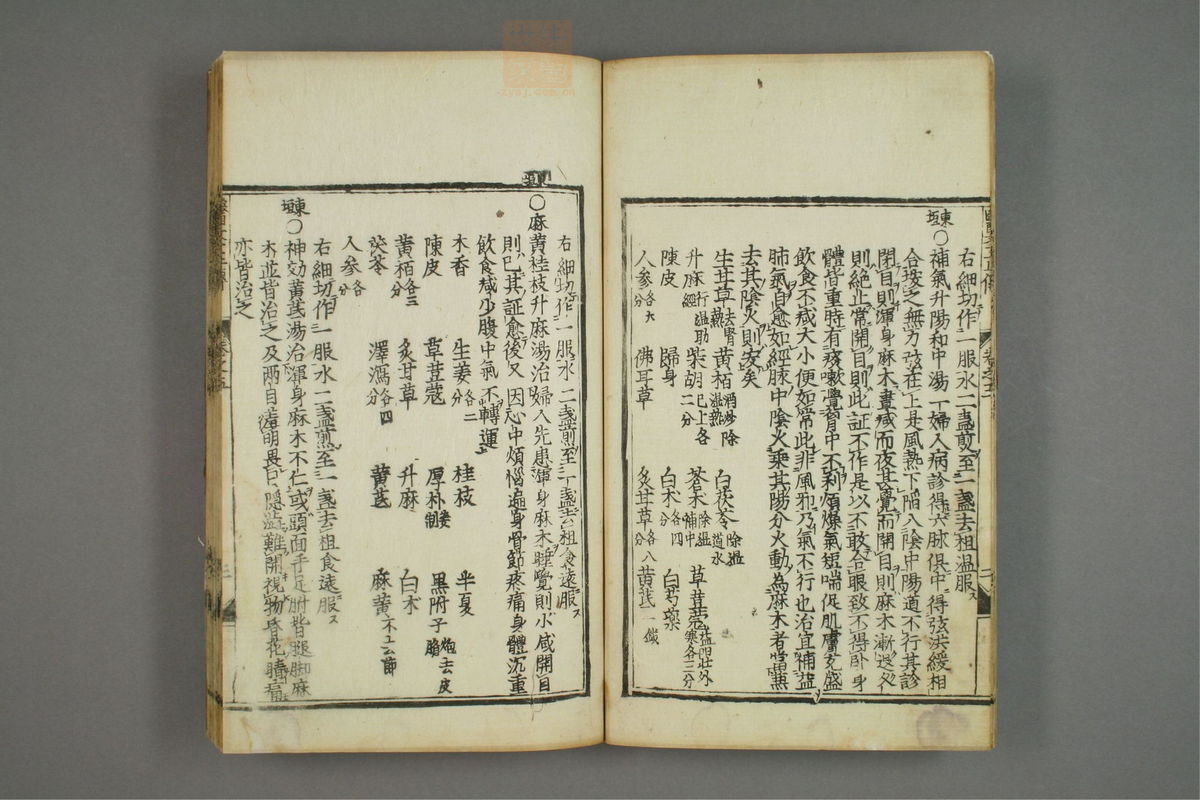 右細切作一服水二盞煎至一盞去柤溫服
東垣○補氣升陽和中湯一婦人病診得六脉俱中得弦洪緩相
合按之無力弦在上是風熱下陷入陰中陽道不行其診
閉目則渾身麻木晝减而夜甚覺而開目則麻木漸退久
則絶止常開目則此証不作是以不敢合眼致不得卧身
體皆重時有痰嗽覺胷中不利煩燥氣短喘促肌膚充盛
飲食不减大小便如常此非風邪乃氣不行也治宜補益
肺氣自愈如經脉中陰火乘其陽分火動為麻木者當兼
去其陰火則安矣
生甘草去腎熱 黄栢消㶣除濕熱 白茯苓除濕道水
升麻行經溫助 柴胡已上各二分 蒼朮除濕補中 草荳蔻益陽壯外寒各三分
陳皮 歸身 白朮各四分 白芍藥
人參各六分 佛耳草 炙甘草各八分 黄芪一錢
右細切作一服水二盞煎至一盞去柤食遠服
東垣○麻黄桂枝升麻湯治婦人先患渾身麻木睡覺則小减開目
則已其証愈後又因心中煩惱遍身骨節疼痛身體沉重
飲食减少腹中氣不轉運
木香 生姜各二分 桂枝 半夏
陳皮 草荳蔻 厚朴姜制 黒附子炮去皮臍
黄栢各三分 炙甘草 升麻 白朮
茯苓 澤瀉各四分 黄芪 麻黄不去節
人參各分
右細切作一服水二盞煎至一盞去柤食遠服
東垣○神効黄芪湯治渾身麻木不仁或頭面手足肘背腿脚麻
木並皆治之及兩目緊急羞明畏日隱澁難開視物昏花睛痛
亦皆治之